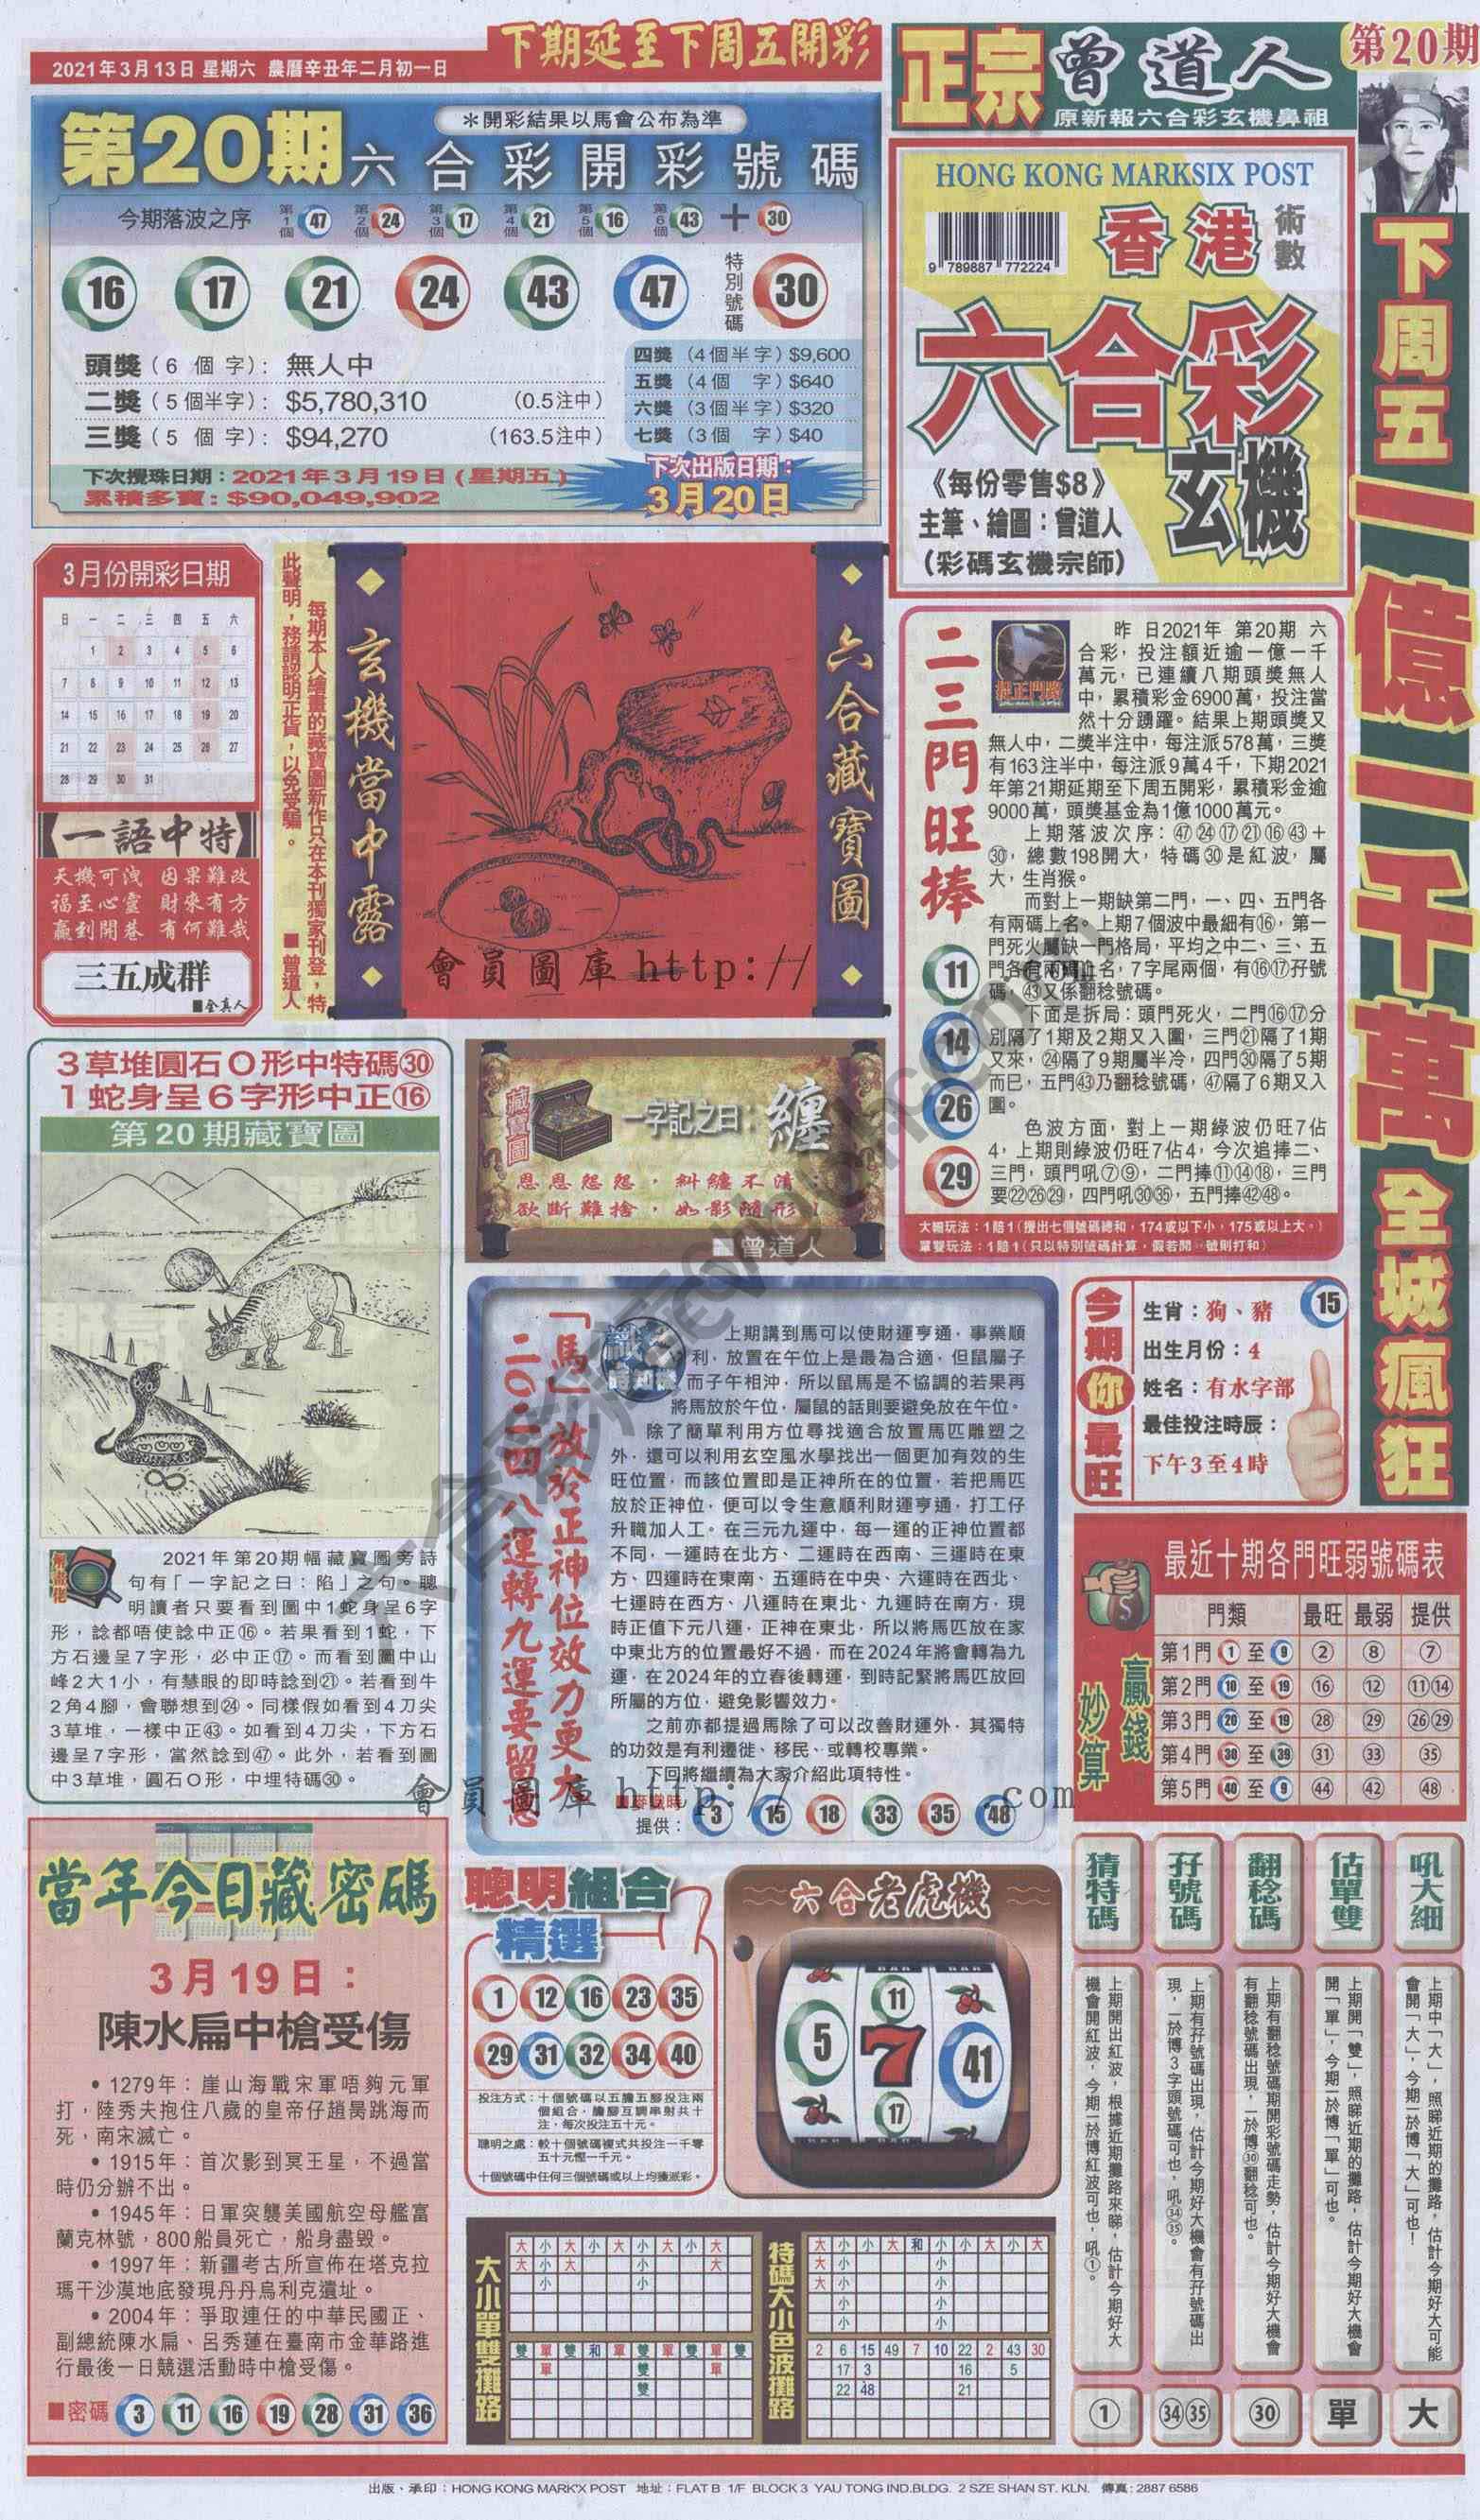 2021年3月13日 星期六 農曆辛丑年二月初一日
下期延至下周五開彩
正宗 曾道人
原新報六合彩玄機鼻祖
第20期
第20期六合彩開彩號碼
＊開彩結果以馬會公布為準
今期落波之序 第1個 47 第2個 24 第3個 17 第4個 21 第5個 16 第6個 43 + 30
16 17 21 24 43 47 特別號碼 30
頭獎（6 個 字）：無人中
二獎（5個半字）：$5,780,310 （0.5注中）
三獎（5 個 字）：$94,270 （163.5注中）
四獎（4個半字）$9,600
五獎（4個 字）$640
六獎（3個半字）$320
七獎（3個 字）$40
下次攪珠日期：2021年3月19日（星期五）
累積多寶：$90,049,902
下次出版日期：
3月20日
HONG KONG MARKSIX POST
9 789887 772224
香港 術數
六合彩
玄機
《每份零售$8》
主筆、繪圖：曾道人
（彩碼玄機宗師）
下周五一億一千萬全城瘋狂
3月份開彩日期
日 一 二 三 四 五 六
1 2 3 4 5 6
7 8 9 10 11 12 13
14 15 16 17 18 19 20
21 22 23 24 25 26 27
28 29 30 31
一語中特
天機可洩 因果難改
福至心靈 財來有方
贏到開巷 有何難哉
三五成群
■金真人
每期本人繪畫的藏寶圖新作只在本刊獨家刊登，特
此聲明，務請認明正貨，以免受騙。 ■曾道人
玄機當中露
六合藏寶圖
會員圖庫 http://
二三門旺捧
11
14
26
29
捉正門路
昨日2021年 第20期 六
合彩，投注額近逾一億一千
萬元，已連續八期頭獎無人
中，累積彩金6900萬，投注當
然十分踴躍。結果上期頭獎又
無人中，二獎半注中，每注派578萬，三獎
有163注半中，每注派9萬4千，下期2021
年第21期延期至下周五開彩，累積彩金逾
9000萬，頭獎基金為1億1000萬元。
上期落波次序：㊼㉔⑰㉑⑯㊸＋
㉚，總數198開大，特碼㉚是紅波，屬
大，生肖猴。
而對上一期缺第二門，一、四、五門各
有兩碼上名。上期7個波中最細有⑯，第一
門死火屬缺一門格局，平均之中二、三、五
門各有兩碼上名，7字尾兩個，有⑯⑰孖號
碼，㊸又係翻稔號碼。
下面是拆局：頭門死火，二門⑯⑰分
別隔了1期及2期又入圍，三門㉑隔了1期
又來，㉔隔了9期屬半冷，四門㉚隔了5期
而已，五門㊸乃翻稔號碼，㊼隔了6期又入
圍。
色波方面，對上一期綠波仍旺7佔
4，上期則綠波仍旺7佔4，今次追捧二、
三門，頭門吼⑦⑨，二門捧⑪⑭⑱，三門
要㉒㉖㉙，四門吼㉚㉟，五門捧㊷㊽。
大細玩法：1賠1（攪出七個號碼總和，174或以下小，175或以上大。）
單雙玩法：1賠1（只以特別號碼計算，假若開 號則打和）
3草堆圓石O形中特碼㉚
1蛇身呈6字形中正⑯
第20期藏寶圖
2021年第20期幅藏寶圖旁詩
句有「一字記之曰：陷」之句。聰
明讀者只要看到圖中1蛇身呈6字
形，諗都唔使諗中正⑯。若果看到1蛇，下
方石邊呈7字形，必中正⑰。而看到圖中山
峰2大1小，有慧眼的即時諗到㉑。若看到牛
2角4腳，會聯想到㉔。同樣假如看到4刀尖
3草堆，一樣中正㊸。如看到4刀尖，下方石
邊呈7字形，當然諗到㊼。此外，若看到圖
中3草堆，圓石O形，中埋特碼㉚。
藏寶圖
一字記之曰：纏
恩恩怨怨，糾纏不清；
欲斷難捨，如影隨形！
■曾道人
「馬」放於正神位效力更大
二〇二四 八運轉九運要留意
上期講到馬可以使財運亨通，事業順
利，放置在午位上是最為合適，但鼠屬子
而子午相沖，所以鼠馬是不協調的若果再
將馬放於午位，屬鼠的話則要避免放在午位。
除了簡單利用方位尋找適合放置馬匹雕塑之
外，還可以利用玄空風水學找出一個更加有效的生
旺位置，而該位置即是正神所在的位置，若把馬匹
放於正神位，便可以令生意順利財運亨通，打工仔
升職加人工。在三元九運中，每一運的正神位置都
不同，一運時在北方、二運時在西南、三運時在東
方、四運時在東南、五運時在中央、六運時在西北、
七運時在西方、八運時在東北、九運時在南方，現
時正值下元八運，正神在東北，所以將馬匹放在家
中東北方的位置最好不過，而在2024年將會轉為九
運，在2024年的立春後轉運，到時記緊將馬匹放回
所屬的方位，避免影響效力。
之前亦都提過馬除了可以改善財運外，其獨特
的功效是有利遷徙、移民、或轉校專業。
下回將繼續為大家介紹此項特性。
提供： 3 15 18 33 35 48
會員圖庫 http:// .com
今期你最旺
生肖：狗、豬 15
出生月份：4
姓名：有水字部
最佳投注時辰：
下午3至4時
最近十期各門旺弱號碼表
贏錢妙算
門類 最旺 最弱 提供
第1門 1 至 9 ② ⑧ ⑦
第2門 10 至 19 ⑯ ⑫ ⑪⑭
第3門 20 至 19 ㉘ ㉙ ㉖㉙
第4門 30 至 39 ㉛ ㉝ ㉟
第5門 40 至 9 ㊹ ㊷ ㊽
當年今日藏密碼
3月19日：
陳水扁中槍受傷
• 1279年：崖山海戰宋軍唔夠元軍
打，陸秀夫抱住八歲的皇帝仔趙昺跳海而
死，南宋滅亡。
• 1915年：首次影到冥王星，不過當
時仍分辦不出。
• 1945年：日軍突襲美國航空母艦富
蘭克林號，800船員死亡，船身盡毀。
• 1997年：新疆考古所宣佈在塔克拉
瑪干沙漠地底發現丹丹烏利克遺址。
• 2004年：爭取連任的中華民國正、
副總統陳水扁、呂秀蓮在臺南市金華路進
行最後一日競選活動時中槍受傷。
■密碼 3 11 16 19 28 31 36
聰明組合
精選
1 12 16 23 35
29 31 32 34 40
投注方式：十個號碼以五膽五腳投注兩
個組合，膽腳互調串射共十
注，每次投注五十元。
聰明之處：較十個號碼複式共投注一千零
五十元慳一千元。
十個號碼中任何三個號碼或以上均獲派彩。
六合老虎機
5 11 7 17 41
大小單雙攤路
大 小 大 小 大 小 大 小 大
大 小 大 小 大
小 小
雙 單 雙 和 單 雙 單 雙 單 雙
單 雙 單
雙
特碼大小色波攤路
大 小 小 大 和 小 小 大 小 大
大 小 小
大 小 小
小 小
小 小
2 6 15 49 7 10 22 2 43 30
17 3 16 5
22 48 21
猜特碼
上期開出紅波，根據近期攤路來睇，估計今期好大
機會開紅波，今期一於博紅波可也，吼①。
①
孖號碼
上期有孖號碼出現，估計今期好大機會有孖號碼出
現，一於博3字頭號碼可也，吼㉞㉟。
㉞㉟
翻稔碼
上期有翻稔號碼期開彩號碼走勢，估計今期好大機會
有翻稔號碼出現，一於博㉚翻稔可也。
㉚
估單雙
上期開「雙」，照睇近期的攤路，估計今期好大機會
開「單」，今期一於博「單」可也。
單
吼大細
上期中「大」，照睇近期的攤路，估計今期好大可能
會開「大」，今期一於博「大」可也！
大
出版、承印：HONG KONG MARK'X POST 地址：FLAT B 1/F BLOCK 3 YAU TONG IND.BLDG. 2 SZE SHAN ST. KLN. 傳真：2887 6586